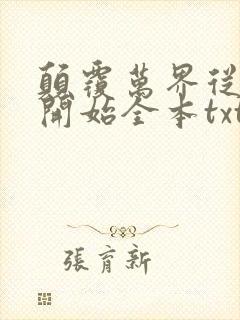 顛覆萬界從
開始全本txt
張育新